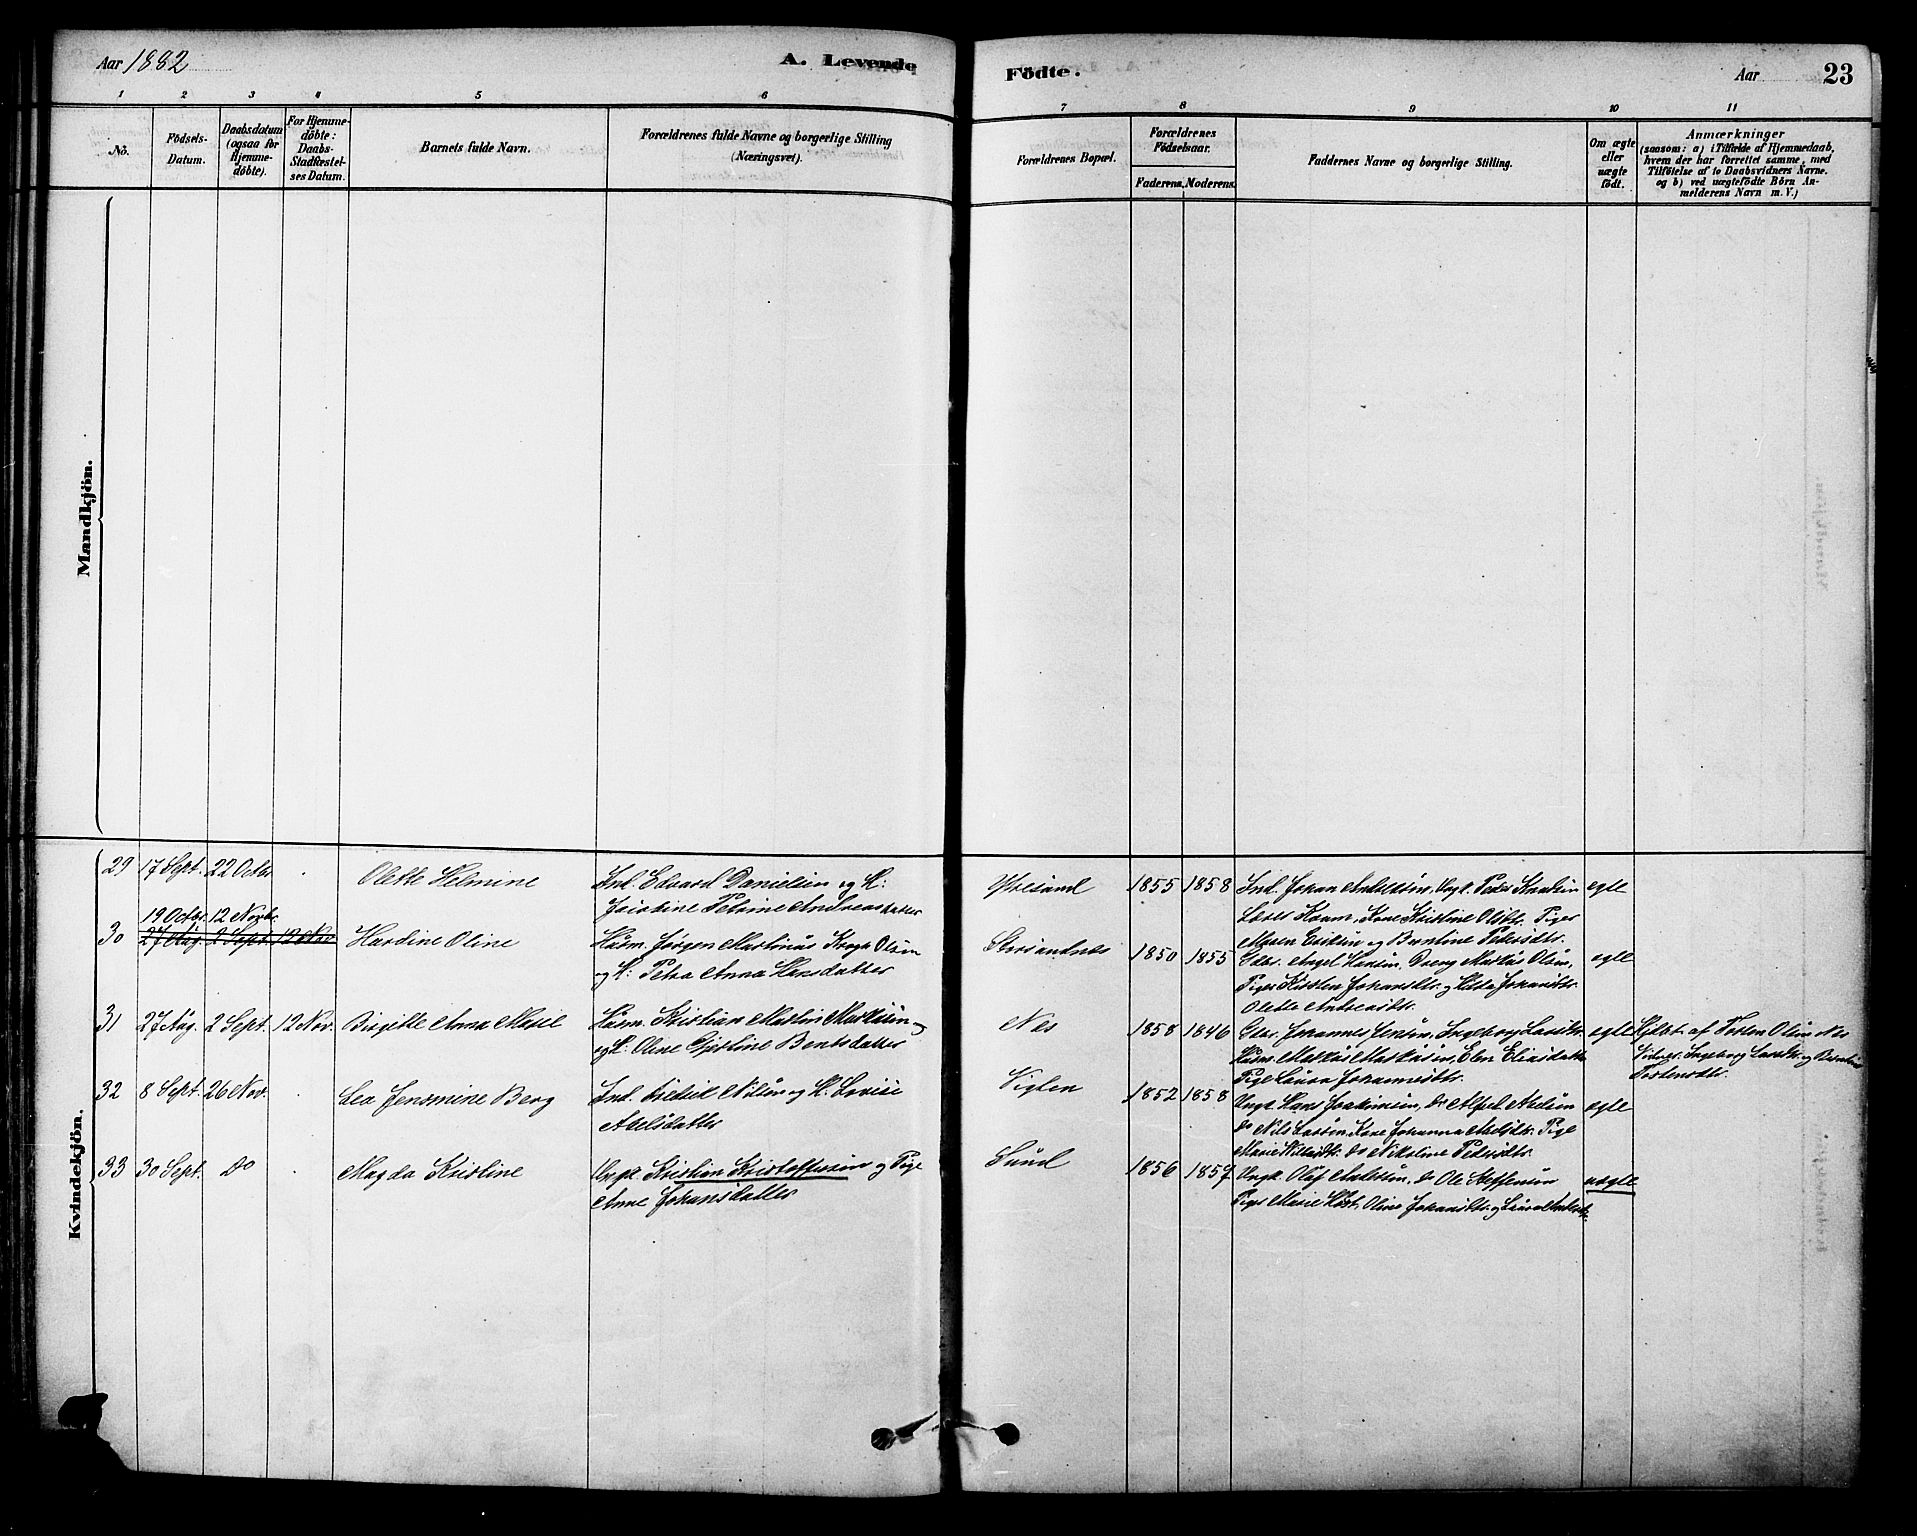 Aar 1882
A. Levende
Födte.
Aar
23
1 2 3 4 5 6
7 8 9 10 11
No.
Födsels-
Datum.
Daabsdatum
(ogsaa for
Hjemme-
döbte).
For Hjemme-
döbte:
Daabs-
Stadfæstel-
ses Datum.
Barnets fulde Navn.
Forældrenes fulde Navne og borgerlige Stilling
(Næringsvei).
Forældrenes Bopæl.
Forældrenes
Födselsaar.
Faderens. Moderens.
Faddernes Navne og borgerlige Stilling.
Om ægte
eller
uægte
født.
Anmærkninger
(saasom: a) i Tilfælde af Hjemmedaab,
hvem der har forrettet samme, med
Tilföielse af to Daabsvidners Navne.
og b) ved uægtefödte Börn An-
melderens Navn m. V.)
Mandkjön.
Kvindekjön.
29 17 Sept. 22 Octbr
Olette Helmine
Ind. Edvard Danielsen og H:
Jacobine Petrine Andreasdatter
1855 1858
Ind. Johan
Peder Knudsen
Kone Kristine Olsdt. Piger
Maren Eriksen og Berntine Pedersdtr.
egte
30
19 Octbr. 12 Novbr.
27 Aug. 2 Sept. 12 Nov
Hardine Oline
Husm. Jørgen Martinus Krogh Olsen
og H: Petra Anna Hansdatter
1850 1855
Gbr. Angel Hansen, Dreng Markus Olsen,
Piger Kirsten Johansdtr. og Hilda Johansdtr.
Olette Andreasdtr.
egte
31 27 Aug. 2 Sept. 12 Nov.
Birgitte Anna Marie
Husm. Kristian Martin Markusen og
og H: Oline Gjertine Berntsdatter
Nes
1858 1846
Gbr. Johannes Jensen, Ingeborg Larsdtr.
Husm. Markus Markusen, Elen Eliasdatter
Pige Laura Johannesdtr.
egte
Hjdbt. af Torsten Olsen Nes
Vidner: Ingeborg Larsdtr. og Berntine
Torstensdtr.
32 8 Sept. 26 Nov.
Lea Jensmine Berg
Ind. Fredrik Nilsen og H. Lovise
Axelsdatter
Viglen
1852 1858
Ungk. Hans Joakimsen, do Alfred Axelsen
do Nils Larsen, Kone Johanna Axelsdtr. Pige
Marie Nilsdtr. do Nikoline Pedersdtr.
egte
33 30 Sept. do
Magda Kristine
Ungk. Kristian Kristoffersen og Pige
Anne Johansdatter
Sund
1856 1857
Ungk. Olaf Andersen, do Ole Steffensen
Piger Marie Høst, Oline Johansdtr. og Laura Andersdtr.
uegte